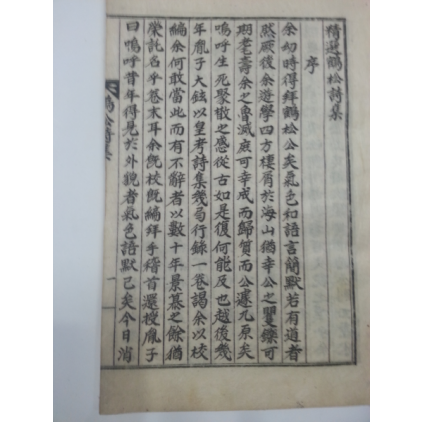 精選鶴松詩集
序
余幼時得拜鶴松公矣氣色和語言簡默若有道者
然厥後余遊學四方棲屑於海山猶幸公之矍鑠可
期耄壽余之魯滅庶可幸成而歸質而公遽九原矣
嗚呼生死聚散之感從古如是復何能及也越後幾
年胤子大鉉以皇考詩集幾局行錄一卷謁余以校
編余何敢當此而有不辭者以數十年景慕之餘猶
榮託名乎卷末耳余旣校旣編拜手稽首還授胤子
曰嗚呼昔年得見於外觀者氣色語默已矣今日消
鶴松詩集
一